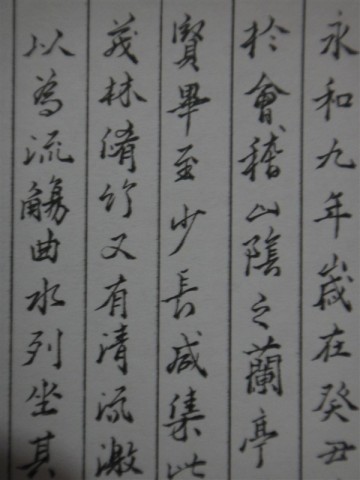 永和九年歲在癸丑
於會稽山陰之蘭亭
賢畢至少長咸集此
茂林脩竹又有清流激
以為流觴曲水列坐其